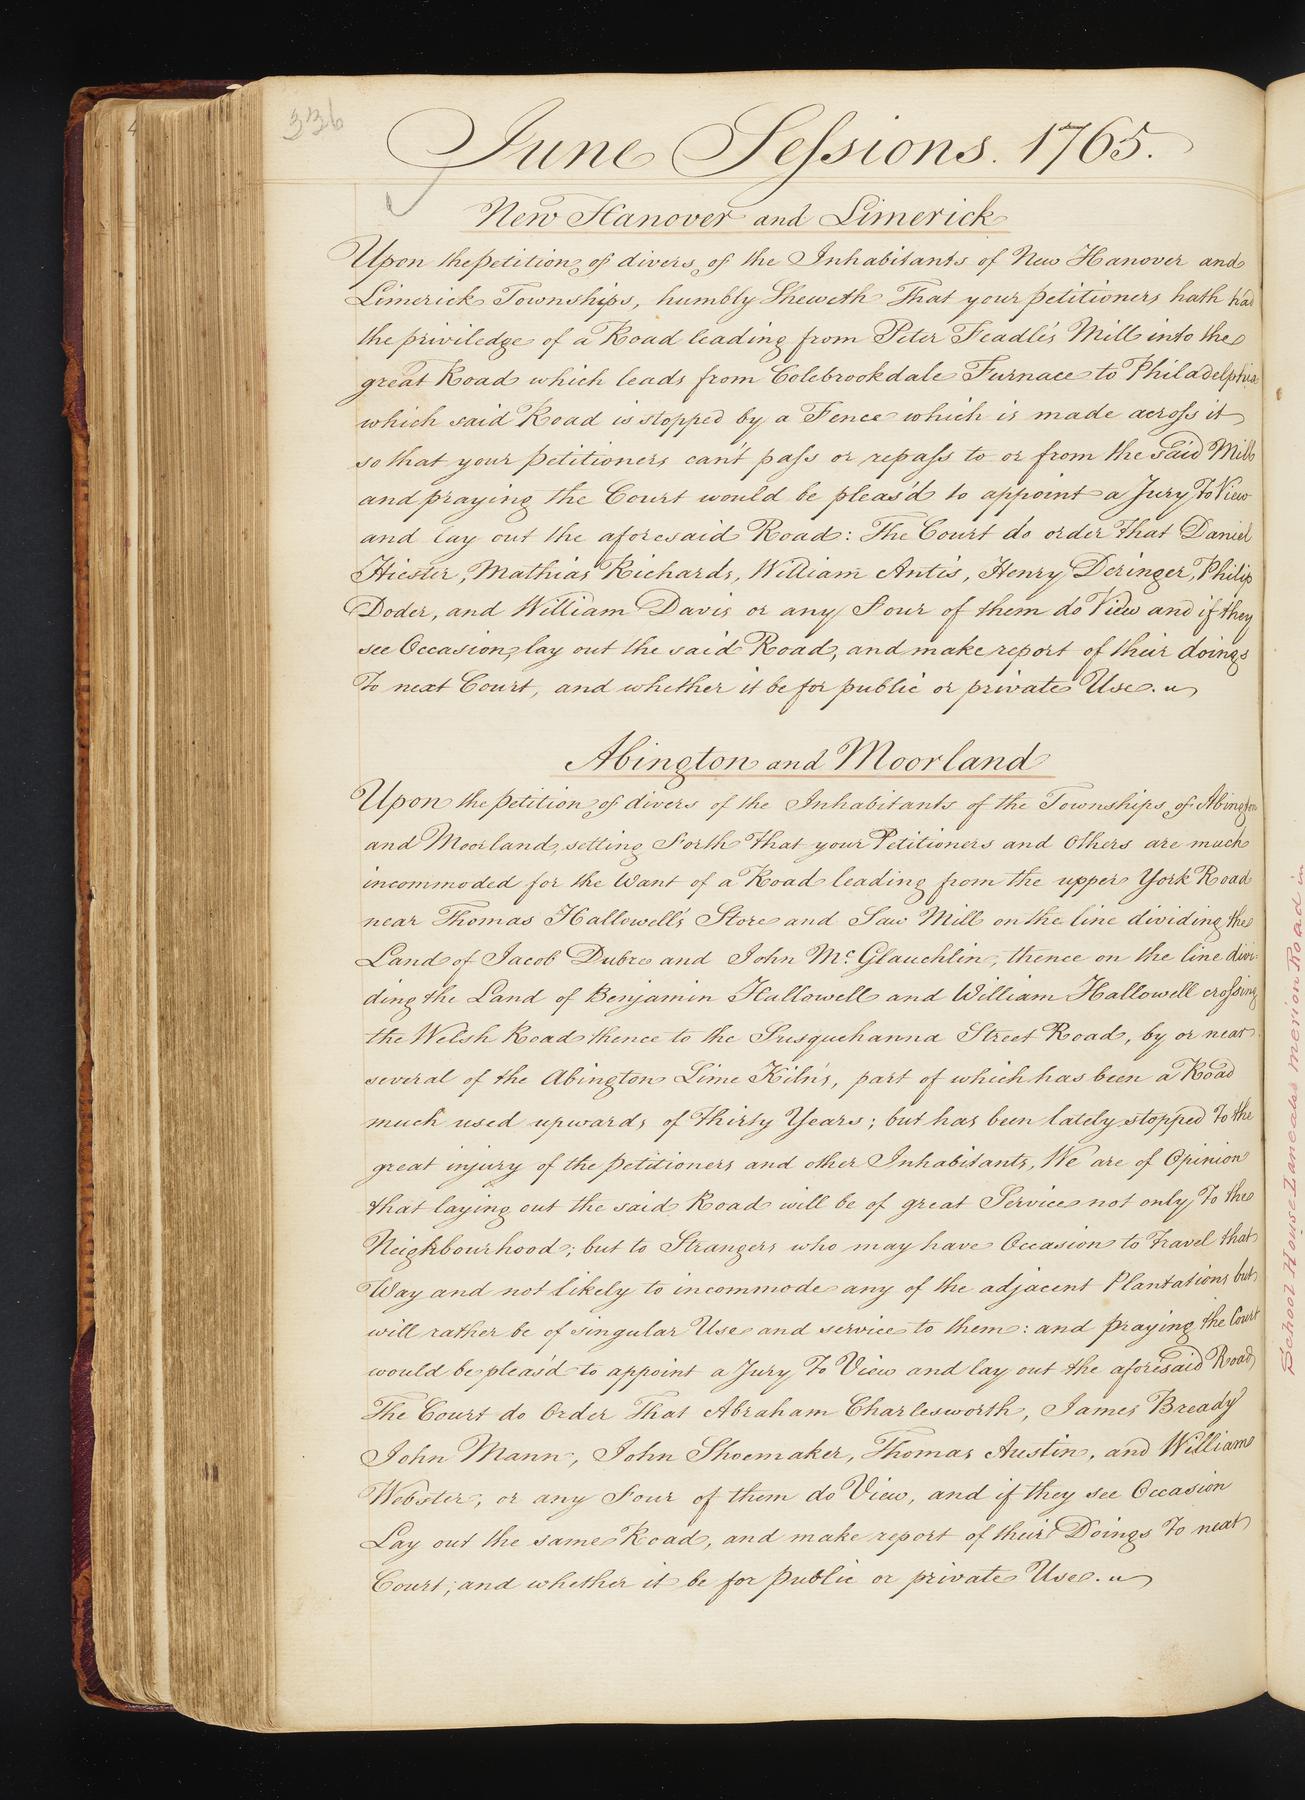 336
June Sessions. 1765.
New Hanover and Limerick
Upon the petition of divers of the Inhabitants of New Hanover and
Limerick Townships, humbly Sheweth That your petitioners hath had
the priviledge of a Road leading from Peter Feadle's Mill into the
great Road which leads from Colebrookdale Furnace to Philadelphia
which said Road is stopped by a Fence which is made across it
so that your petitioners can't pass or repass to or from the said Mill
and praying the Court would be pleas'd to appoint a Jury To View
and lay out the aforesaid Road: The Court do order that Daniel
Hiester, Mathias Richards, William Antis, Henry Deringer, Philip
Doder, and William Davis or any Four of them do View and if they
see Occasion, lay out the said Road, and make report of their doings
To next Court, and whether it be for public or private Use.
Abington and Moorland
Upon the petition of divers of the Inhabitants of the Townships of Abington
and Moorland, setting Forth That your Petitioners and Others are much
incommoded for the Want of a Road leading from the upper York Road
near Thomas Hallowell's Store and Saw Mill on the line dividing the
Land of Jacob Dubre and John Mc. Glauchlin, thence on the line divi-
ding the Land of Benjamin Hallowell and William Hallowell crossing
the Welsh Road thence to the Susquehanna Street Road, by or near
several of the Abington Lime Kiln's, part of which has been a Road
much used upwards of Thirty Years; but has been lately stopped To the
great injury of the petitioners and other Inhabitants, We are of Opinion
that laying out the said Road will be of great Service not only To the
Neighbourhood; but to Strangers who may have Occasion to Travel that
Way and not likely to incommode any of the adjacent Plantations but
will rather be of singular Use and service to them: and praying the Court
would be pleas'd to appoint a Jury To View and lay out the aforesaid Road
The Court do Order That Abraham Charlesworth, James Bready
John Mann, John Shoemaker, Thomas Austin, and William
Webster, or any Four of them do View, and if they see Occasion
Lay out the same Road, and make report of their Doings To next
Court; and whether it be for public or private Use.
School House Lane also Merion Road in